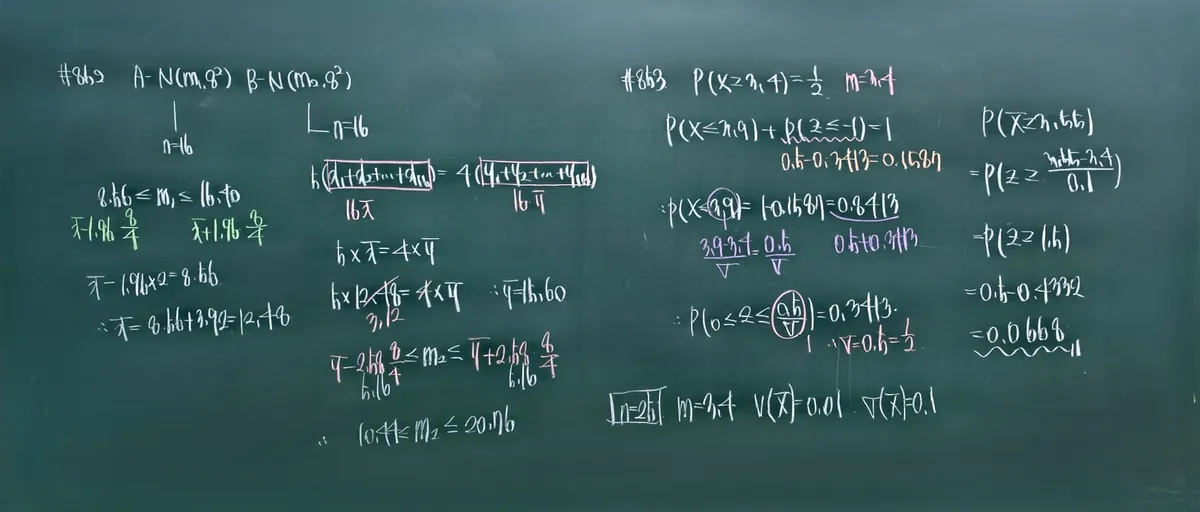 #862 A-N(m₁, 8²) B-N(m₂, 8²)
n=16
n=16
8.56 ≤ m₁ ≤ 16.40
x̄-1.96 8/4 x̄+1.96 8/4
x̄-1.96×2=8.56
∴ x̄=8.56+3.92=12.48
5(x₁+x₂+...+x₁₆) = 4(y₁+y₂+...+y₁₆)
16x̄ 16ȳ
5×x̄=4×ȳ
5×12.48=4×ȳ ∴ȳ=15.60
3.12
ȳ-2.58 8/4 ≤ m₂ ≤ ȳ+2.58 8/4
5.16 5.16
∴ 10.44 ≤ m₂ ≤ 20.76
#863 P(X≥3.4)=1/2 m=3.4
P(X≤3.9)+P(Z≤-1)=1
0.5-0.3413=0.1587
∴P(X≤3.9)=1-0.1587=0.8413
(3.9-3.4)/σ = 0.5/σ 0.5+0.3413
∴ P(0≤Z≤0.5/σ)=0.3413
1 ∴σ=0.5=1/2
n=25 m=3.4 V(X̄)=0.01 σ(X̄)=0.1
P(X̄≥3.55)
=P(Z≥(3.55-3.4)/0.1)
=P(Z≥1.5)
=0.5-0.4332
=0.0668